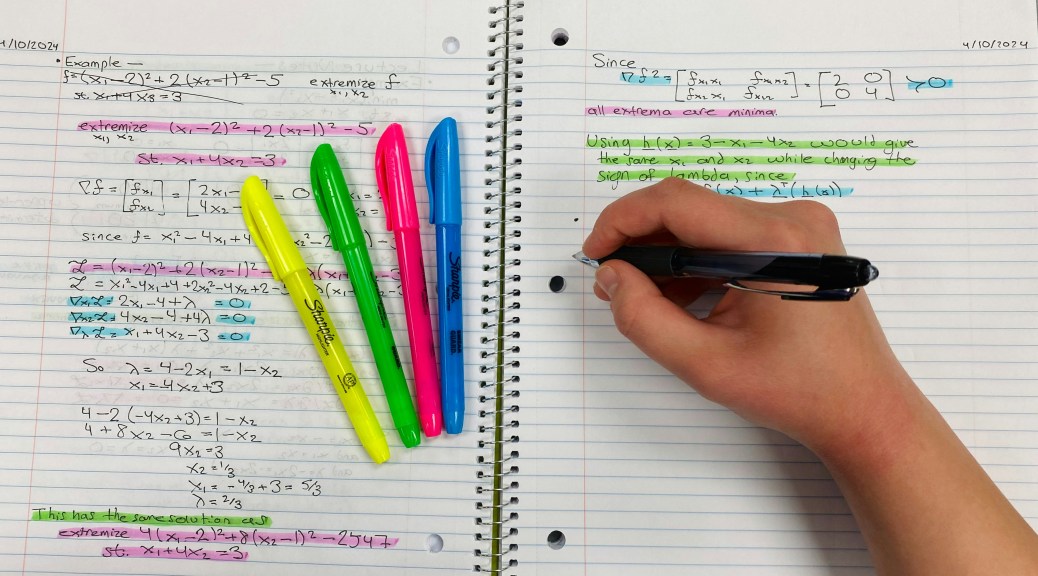 4/10/2024
• Example —
f=(x₁-2)²+2(x₂-1)²-5 extremize f
x₁,x₂
st. x₁+4x₂=3
extremize (x₁-2)²+2(x₂-1)²-5
x₁, x₂
st. x₁+4x₂=3
∇f = [fx₁ fx₂] = = 0
since f= x₁²-4x₁+4
L = (x₁-2)²+2(x₂-1)²
L = x₁²-4x₁+4+2x₂²-4x₂+2-
∇x₁L= 2x₁-4+λ =0
∇x₂L= 4x₂-4+4λ =0
∇λL= x₁+4x₂-3 =0
So λ= 4-2x₁ =1-x₂
x₁=-4x₂+3
4-2(-4x₂+3)=1-x₂
4+8x₂-6 =1-x₂
9x₂=3
x₂=1/3
x₁= -4/3+3= 5/3
λ=2/3
This has the same solution as
extremize 4(x₁-2)²+8(x₂-1)²-2547
st. x₁+4x₂=3
Sharpie
Sharpie
4/10/2024
Since
∇f²= [fx₁x₁ fx₁x₂ fx₂x₁ fx₂x₂] = [2 0 0 4] ≻0
all extrema are minima.
Using h(x)=3-x₁-4x₂ would give
the same x₁ and x₂ while changing the
sign of lambda, since
f(x)+λᵀ(h(x))